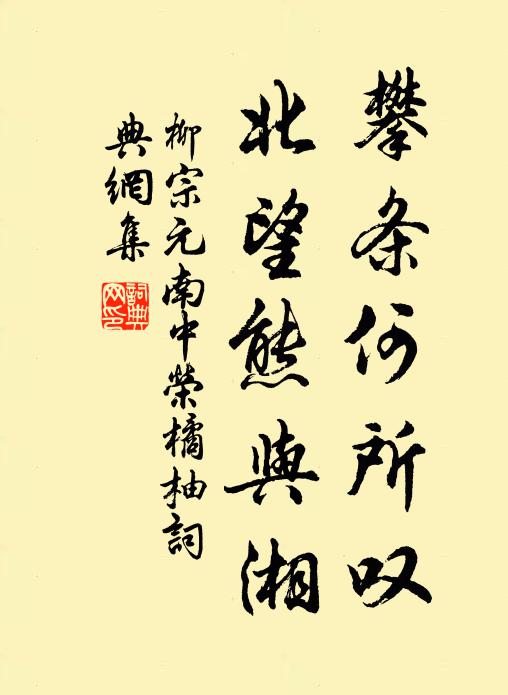 攀条何所叹
北望熊與湘
柳宗元南中榮橘柚詞
典網集
詞典網印